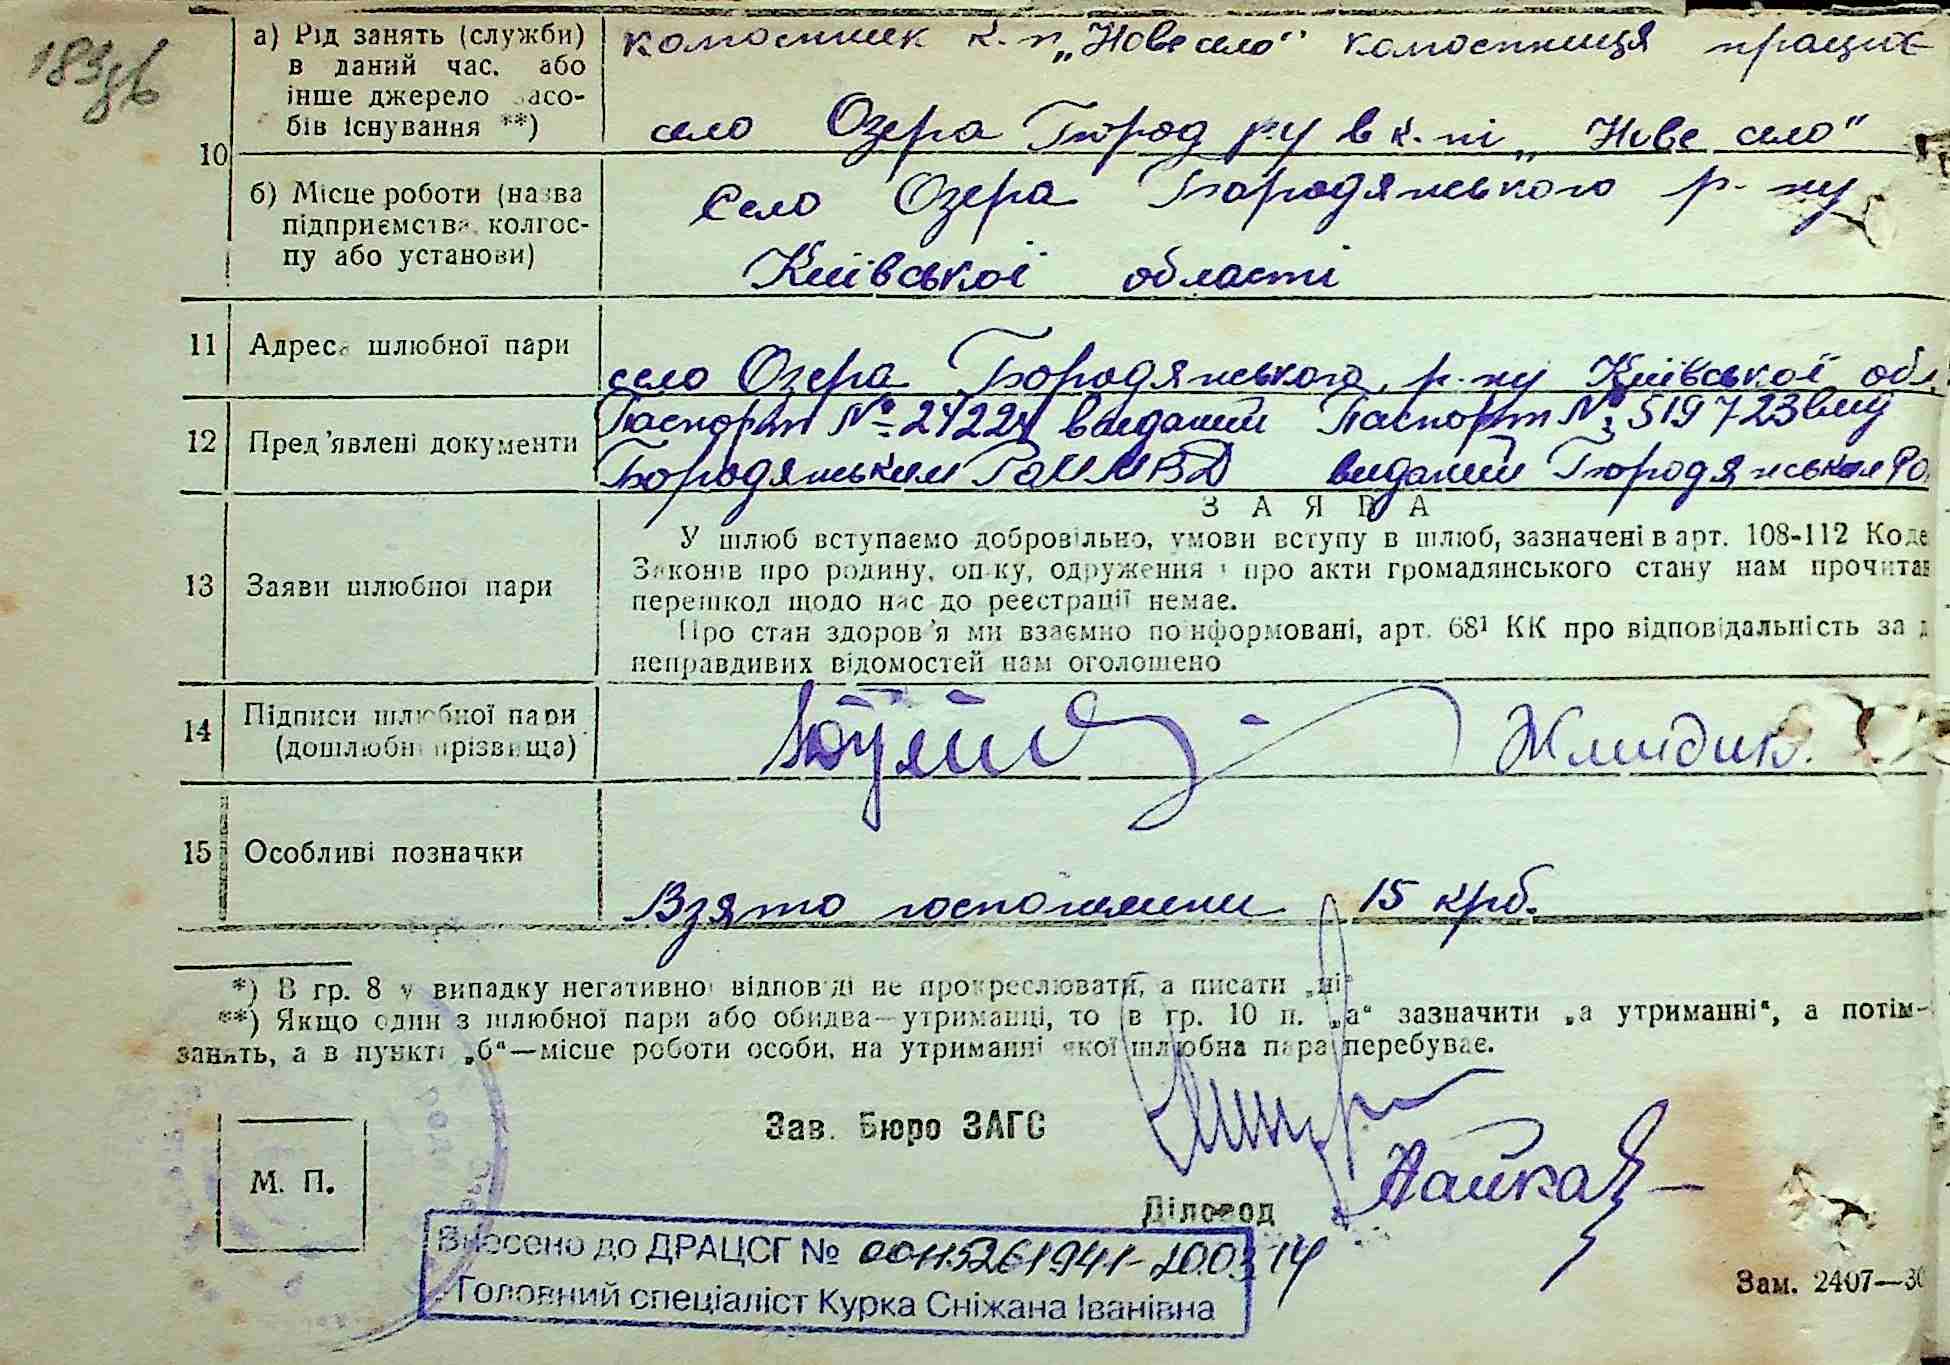 183зв
а) Рід занять (служби) в даний час, або інше джерело засобів існування **)
колгоспник к-п „Нове село" колгоспниця працює
село Озера Бород р-ну в к-пі „Нове село"
10
б) Місце роботи (назва підприємства, колгоспу або установи)
село Озера Бородянського р-ну
Київської області
11 Адреса шлюбної пари
село Озера Бородянського р-ну Київської обл.
12 Пред'явлені документи
Паспорт № виданий Паспорт № 519723
Бородянським РОМ МВД виданий Бородянським
З А Я В А
13 Заяви шлюбної пари
У шлюб вступаємо добровільно, умови вступу в шлюб, зазначені в арт. 108-112 Коде
Законів про родину, опіку, одруження і про акти громадянського стану нам прочитан
перешкод щодо нас до реєстрації немає.
Про стан здоров'я ми взаємно поінформовані, арт. 68¹ КК про відповідальність за д
неправдивих відомостей нам оголошено
14 Підписи шлюбної пари (дошлюбні прізвища)
15 Особливі позначки
Взято госпошлини 15 крб.
*) В гр. 8 у випадку негативної відповіді не прокреслювати, а писати „ні"
**) Якщо один з шлюбної пари або обидва—утриманці, то в гр. 10 п. „а" зазначити „а утриманні", а потім—
занять, а в пункті „б"—місце роботи особи, на утриманні якої шлюбна пара перебуває.
Зав. Бюро ЗАГС
М. П.
Діловод
Внесено до ДРАЦСГ № 00115261941-20.03.14
Головний спеціаліст Курка Сніжана Іванівна
Зам. 2407—30